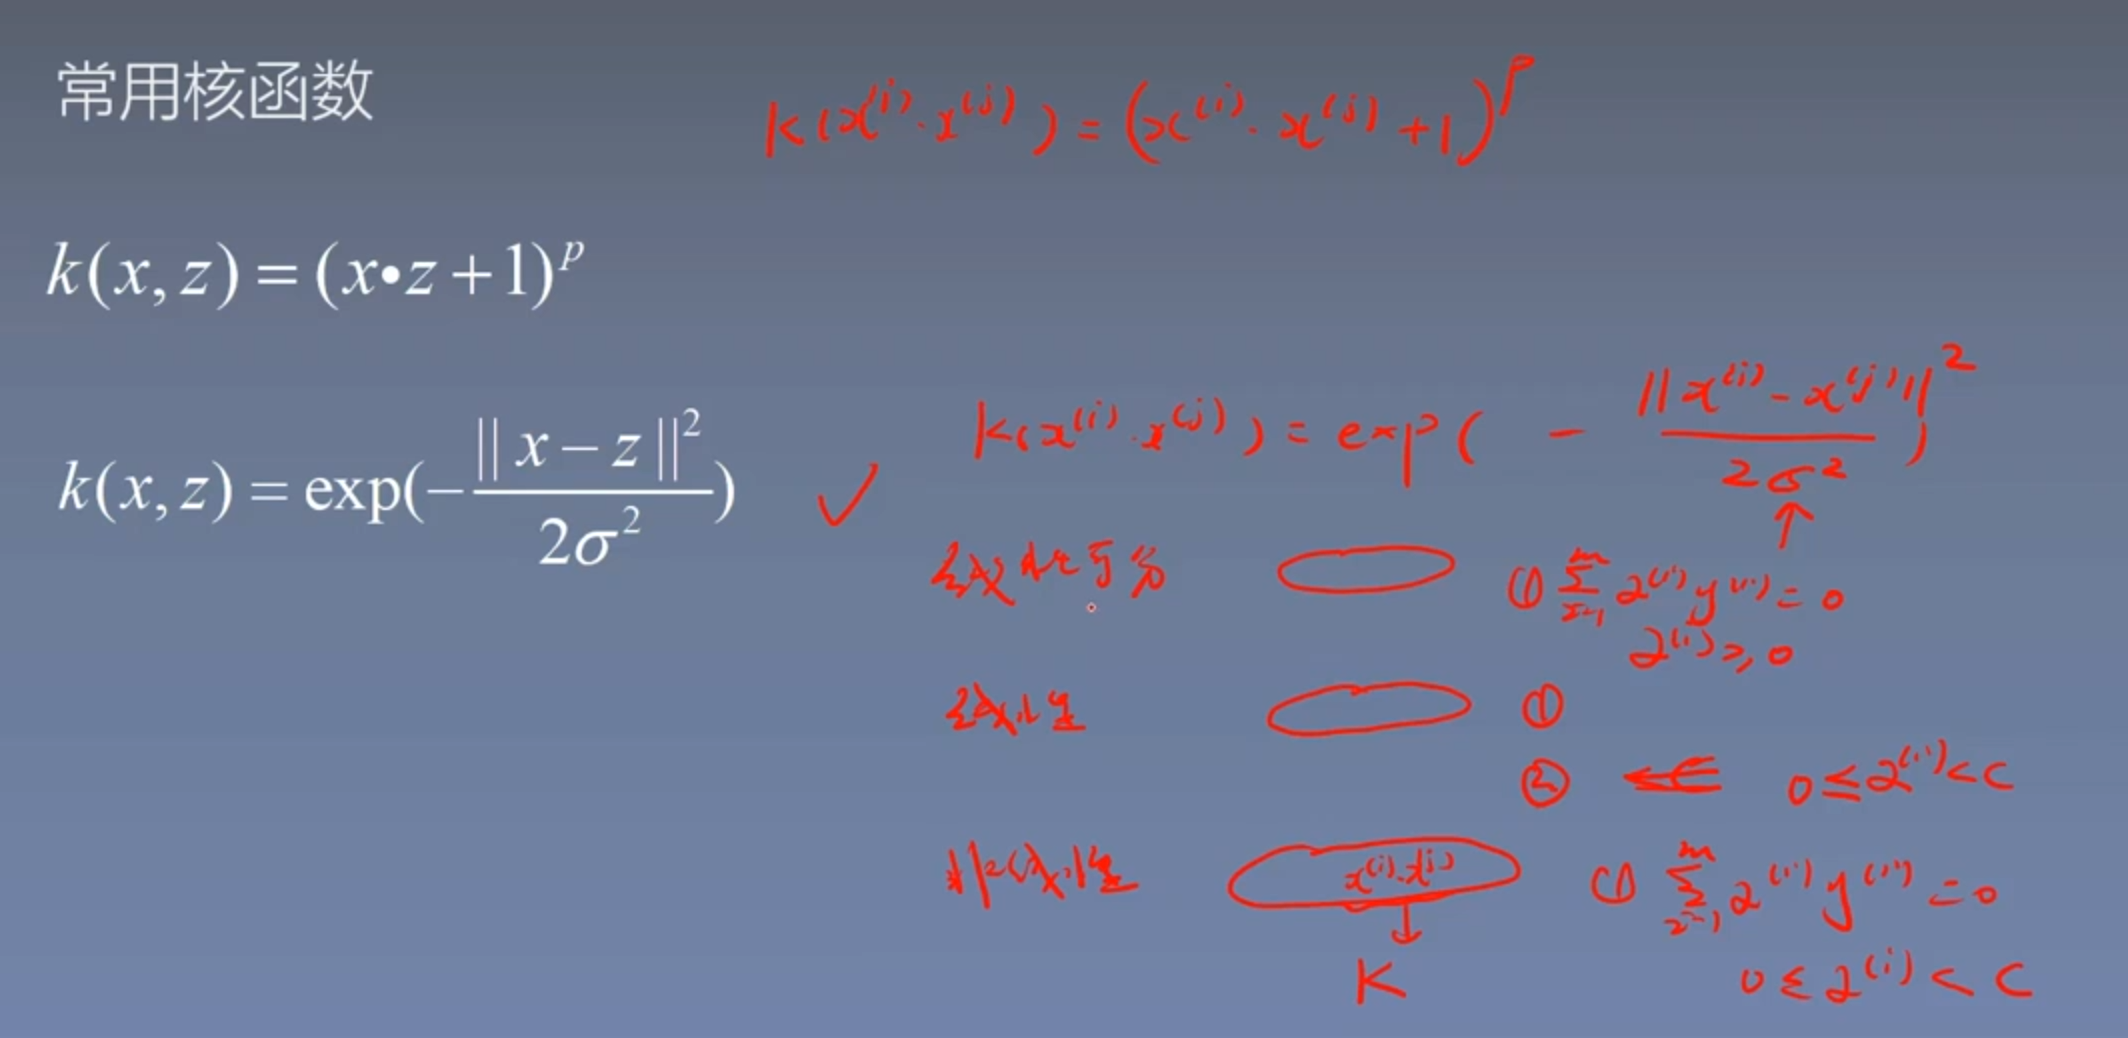 常用核函数
k(x^(i)·x^(j)) = (x^(i)·x^(j)+1)^p
k(x,z)=(x•z+1)^p
k(x^(i)·x^(j)) = exp( - ||x^(i)-x^(j)||^2 / 2σ^2 )
k(x,z)=exp(-||x-z||^2 / 2σ^2) ✓
线性可分 ① Σ α^(i) y^(i) = 0
α^(i) ≥ 0
线性 ①
② ⇐ 0≤α^(i)<C
非线性 x^(i)·x^(j) ① Σ α^(i) y^(i) = 0
K 0≤α^(i)<C